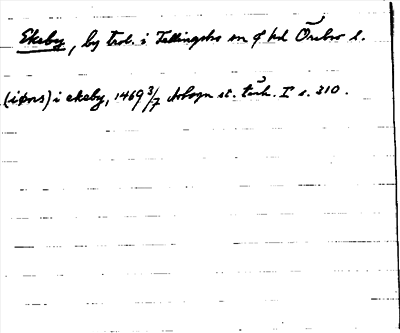 Ekeby, by trol. i Tellingsbro sn o hd Örebro l.
(iöns) i ekeby, 1469 3/7 Arboga st. tänk. I s. 310.